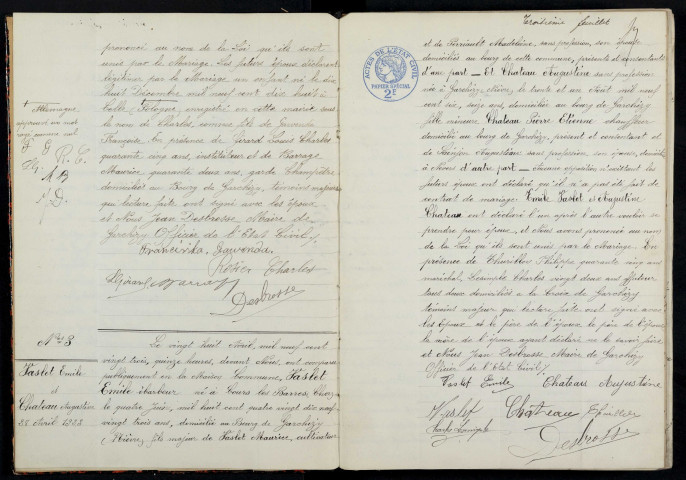 prononcé au nom de la Loi qu'ils sont
unis par le Mariage. Les futurs époux déclarent
légitimer par le Mariage un enfant né le dix
huit Décembre mil neuf cent dix huit à
Celle Pologne enregistré en cette mairie sous
le nom de Charles, comme fils de
Française. En présence de Gérard Louis Charles
quarante cinq ans, instituteur et de Barrage
Maurice, quarante deux ans, garde Champêtre
domiciliés au Bourg de Garchizy, témoins majeurs
qui lecture faite ont signé avec les époux
et Nous Jean Desbrosse Maire de
Garchizy Officier de l'Etat Civil
Franciszka Gawenda
Charles
LGérard
Desbrosse
+ Allemagne
N° 3
Paslet Emile
et
Chateau Augustine
28 Avril 1923
Le vingt huit Avril, mil neuf cent
vingt trois, quinze heures, devant Nous, ont comparu
publiquement en la Maison Commune, Paslet
Emile né à Cours les Barres, Cher,
le quatre Juin, mil huit cent quatre vingt dix neuf
vingt trois ans, domicilié au Bourg de Garchizy
Nièvre, fils majeur de Paslet Maurice, cultivateur
Troisième feuillet
et de Perriault Madeleine, sans profession, son épouse
domiciliés au bourg de cette commune, présents et consentants
d'une part — Et Chateau Augustine sans profession
née à Garchizy, Nièvre, le trente et un Août mil neuf
cent six, seize ans, domiciliée au bourg de Garchizy
fille mineure Chateau Pierre Etienne chauffeur
domicilié au bourg de Garchizy, présent et consentant et
de Augustine sans profession son épouse, domiciliée
à Nevers d'autre part — Aucune opposition n'existant les
futurs époux ont déclaré qu'il n'a pas été fait de
contrat de mariage. Emile Paslet et Augustine
Chateau ont déclaré l'un après l'autre vouloir se
prendre pour époux, et Nous avons prononcé au nom
de la Loi qu'ils sont unis par le Mariage. En
présence de Thuillier Philippe quarante cinq ans
maréchal, Lesimple Charles vingt deux ans
tous deux domiciliés à la Croix de Garchizy
témoins majeurs qui lecture faite ont signé avec
les époux et le père de l'épouse, le père de l'époux
la mère de l'époux ayant déclaré ne le savoir faire
et Nous Jean Desbrosse Maire de Garchizy
Officier de l'Etat Civil
Paslet Emile Chateau Augustine
Château Thuillier
Charles Lesimple
Desbrosse
ACTES DE L'ETAT CIVIL
PAPIER SPECIAL
2F